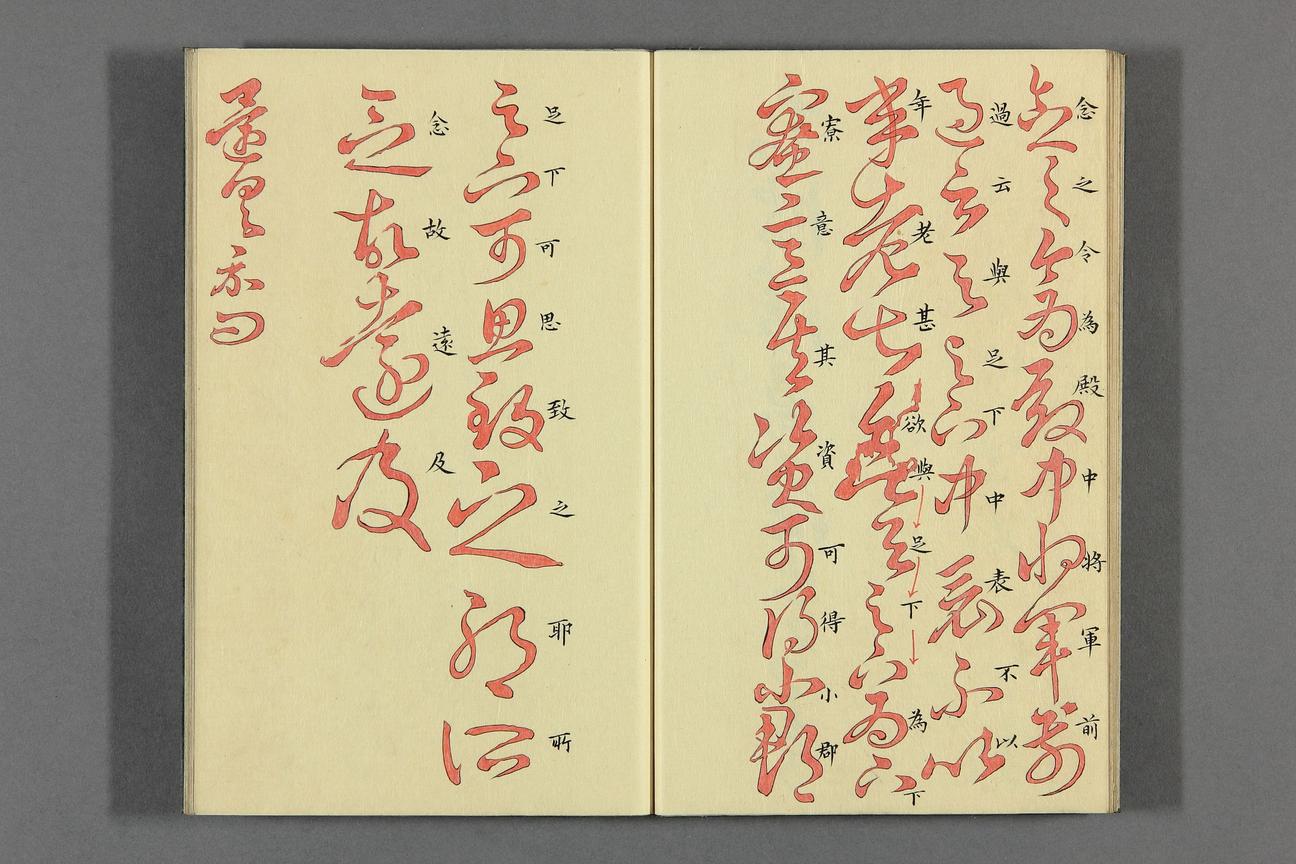 念之令為殿中將軍前
過云與足下中表不以
年老甚欲與足下為下
寮意其資可得小郡
足下可思致之耶所
念故遠及